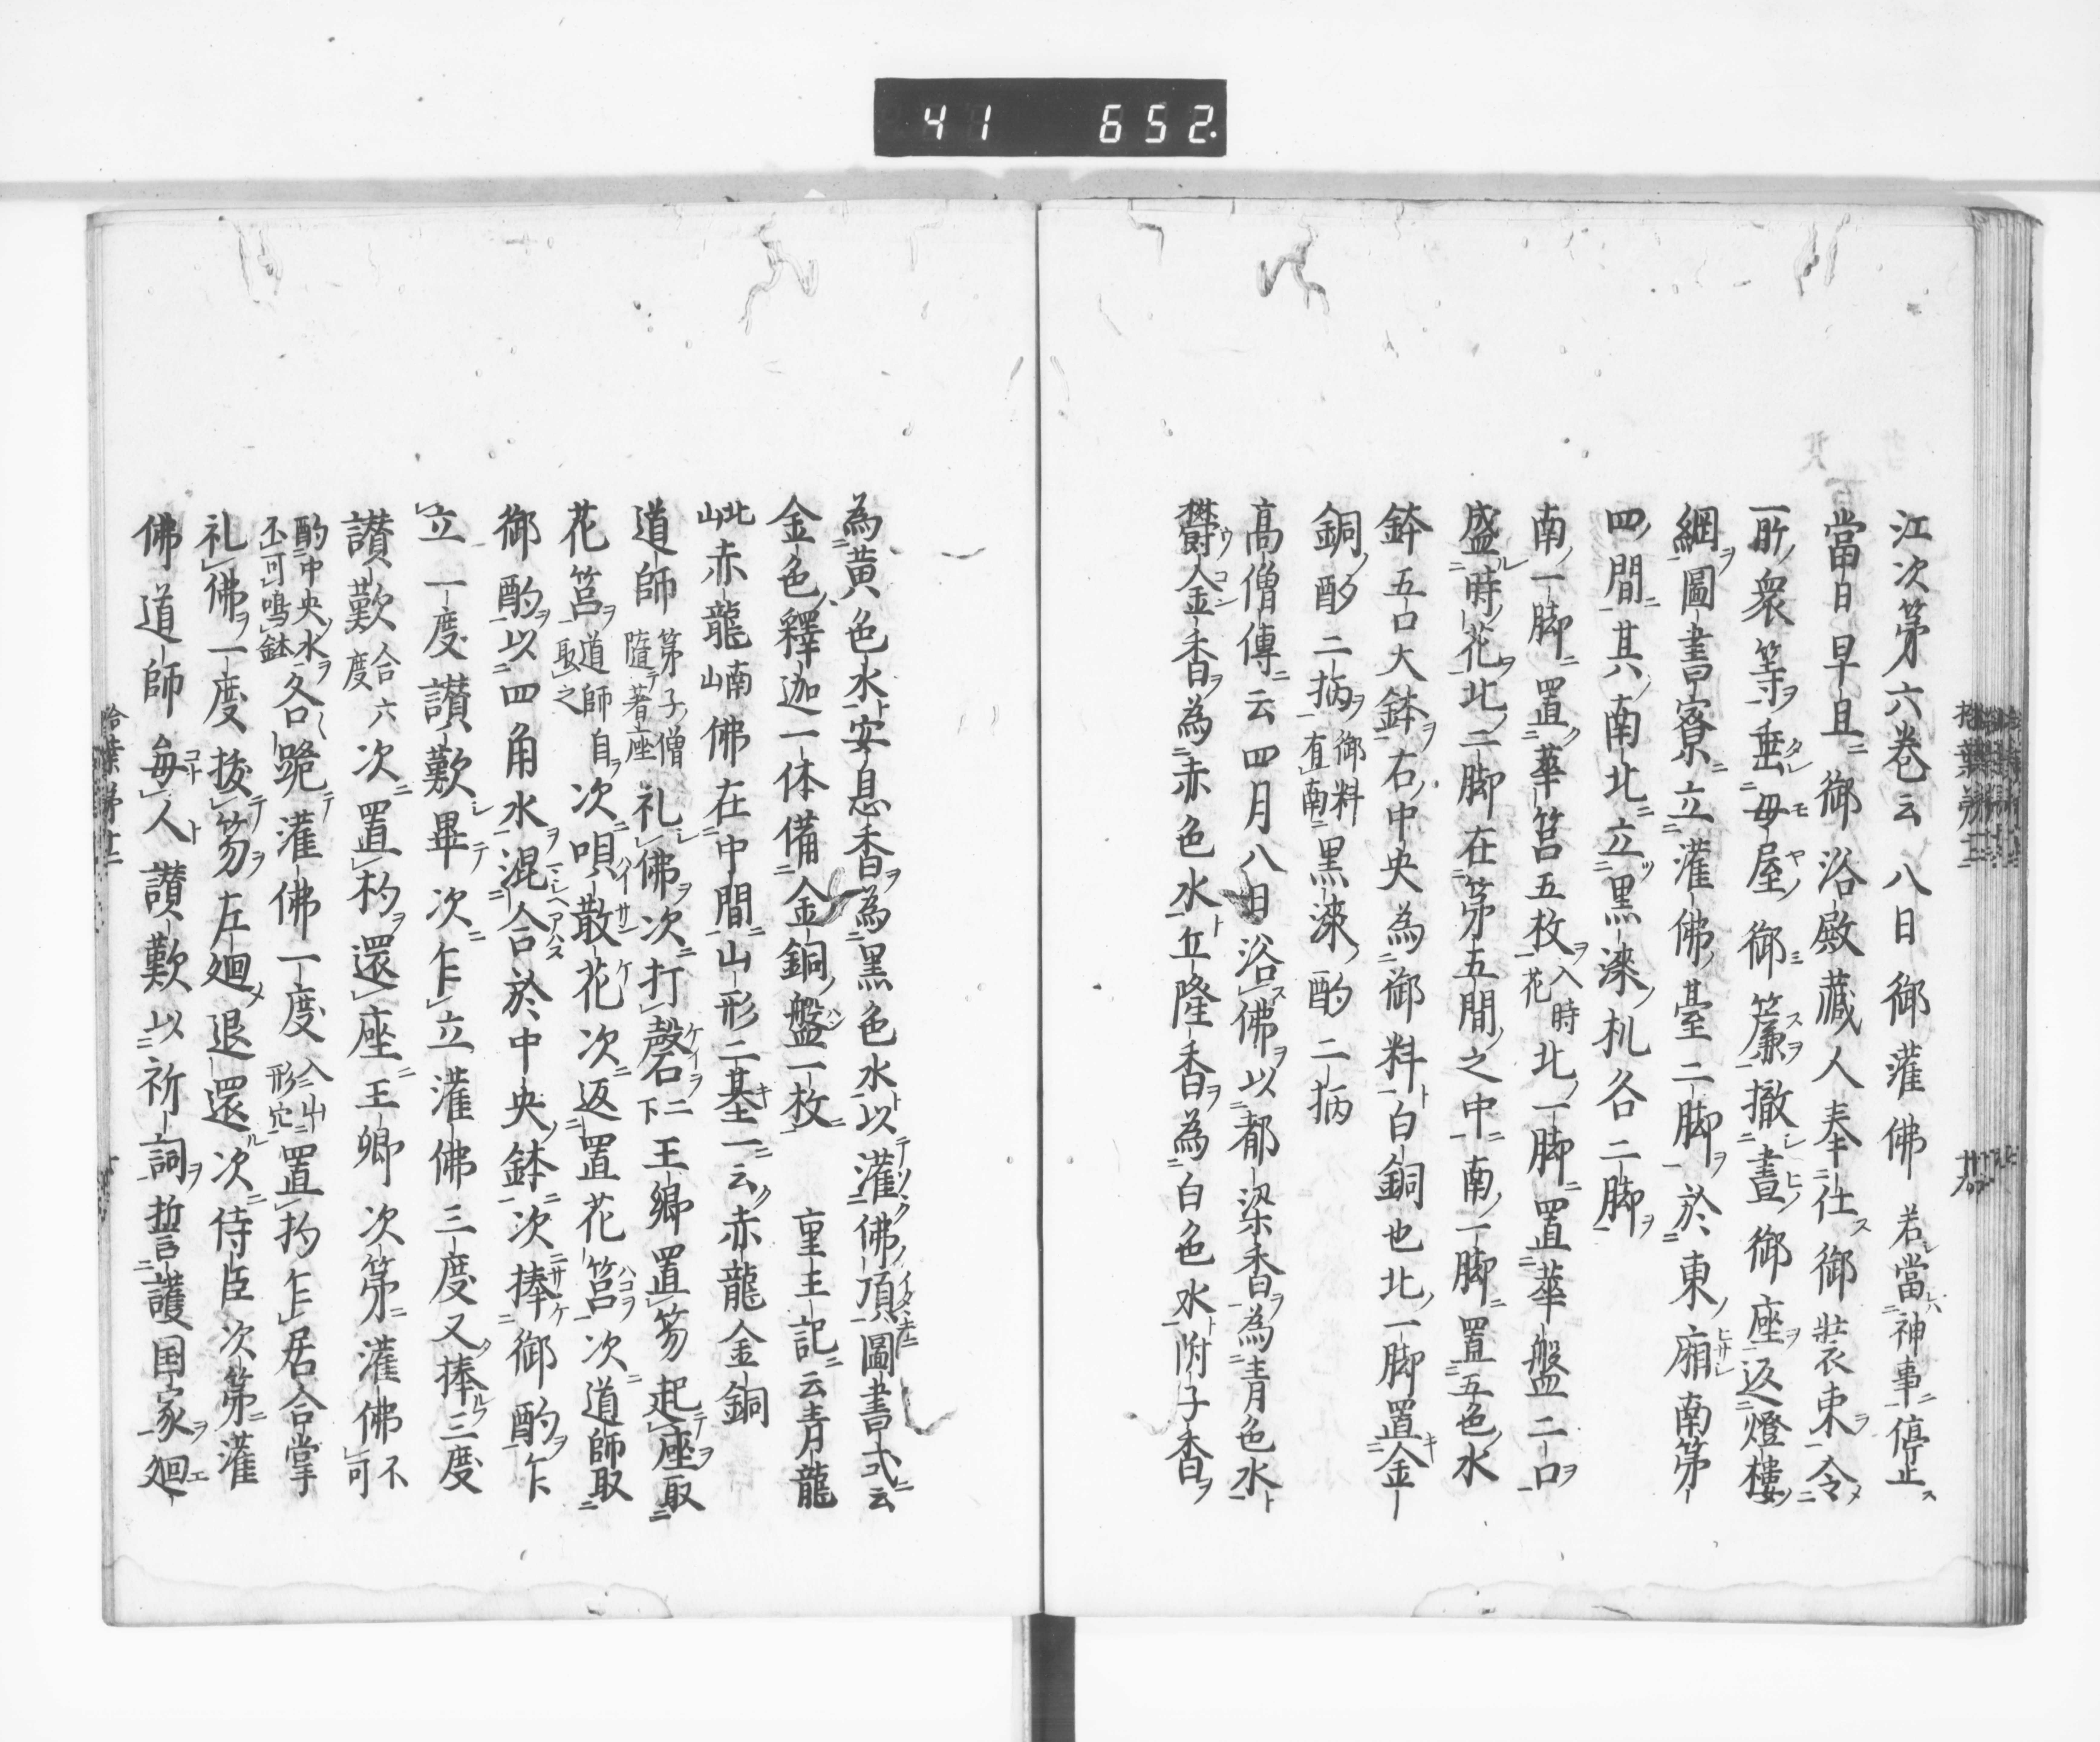 41 652
江次第六巻云八日御灌佛 若當神事停止
當日早旦御浴殿蔵人奉仕御装束令
一所衆等垂母屋御簾撤晝御座返燈樓
綱圖書寮立灌佛臺二脚於東廂南第
四間其南北立黒漆机各二脚
南一脚置華筥五枚 入時花 北一脚置華盤二口
盛時花北二脚在第五間之中南一脚置五色水
鉢五口大鉢右中央為御料白銅也北一脚置金
銅酌二柄 御料直南 黒漆酌二柄
高僧傳云四月八日浴佛以都梁香為青色水
欝金香為赤色水丘隆香為白色水附子香
為黄色水安息香為黒色水以灌佛頂圖書式云
金色釋迦一体備金銅盤一枚 重主記云青龍
北山赤龍南山佛在中間山形二基一云赤龍金銅
道師 第子僧隨著座 礼佛次打磬二下王卿置笏起座取
花筥 道師自取之 次唄散花次返置花筥次道師取
御酌以四角水混合於中央鉢次捧御酌乍
立一度讃歎畢次乍立灌佛三度又捧三度
讃歎 合六度 次置杓還座王卿次第灌佛 不可
酌中央水不可鳴鉢 各跪灌佛一度 入山形穴 置杓乍居合掌
礼佛一度抜笏左廻退還次侍臣次第灌
佛道師毎人讃歎以祈詞誓護国家廻
拾葉第十二